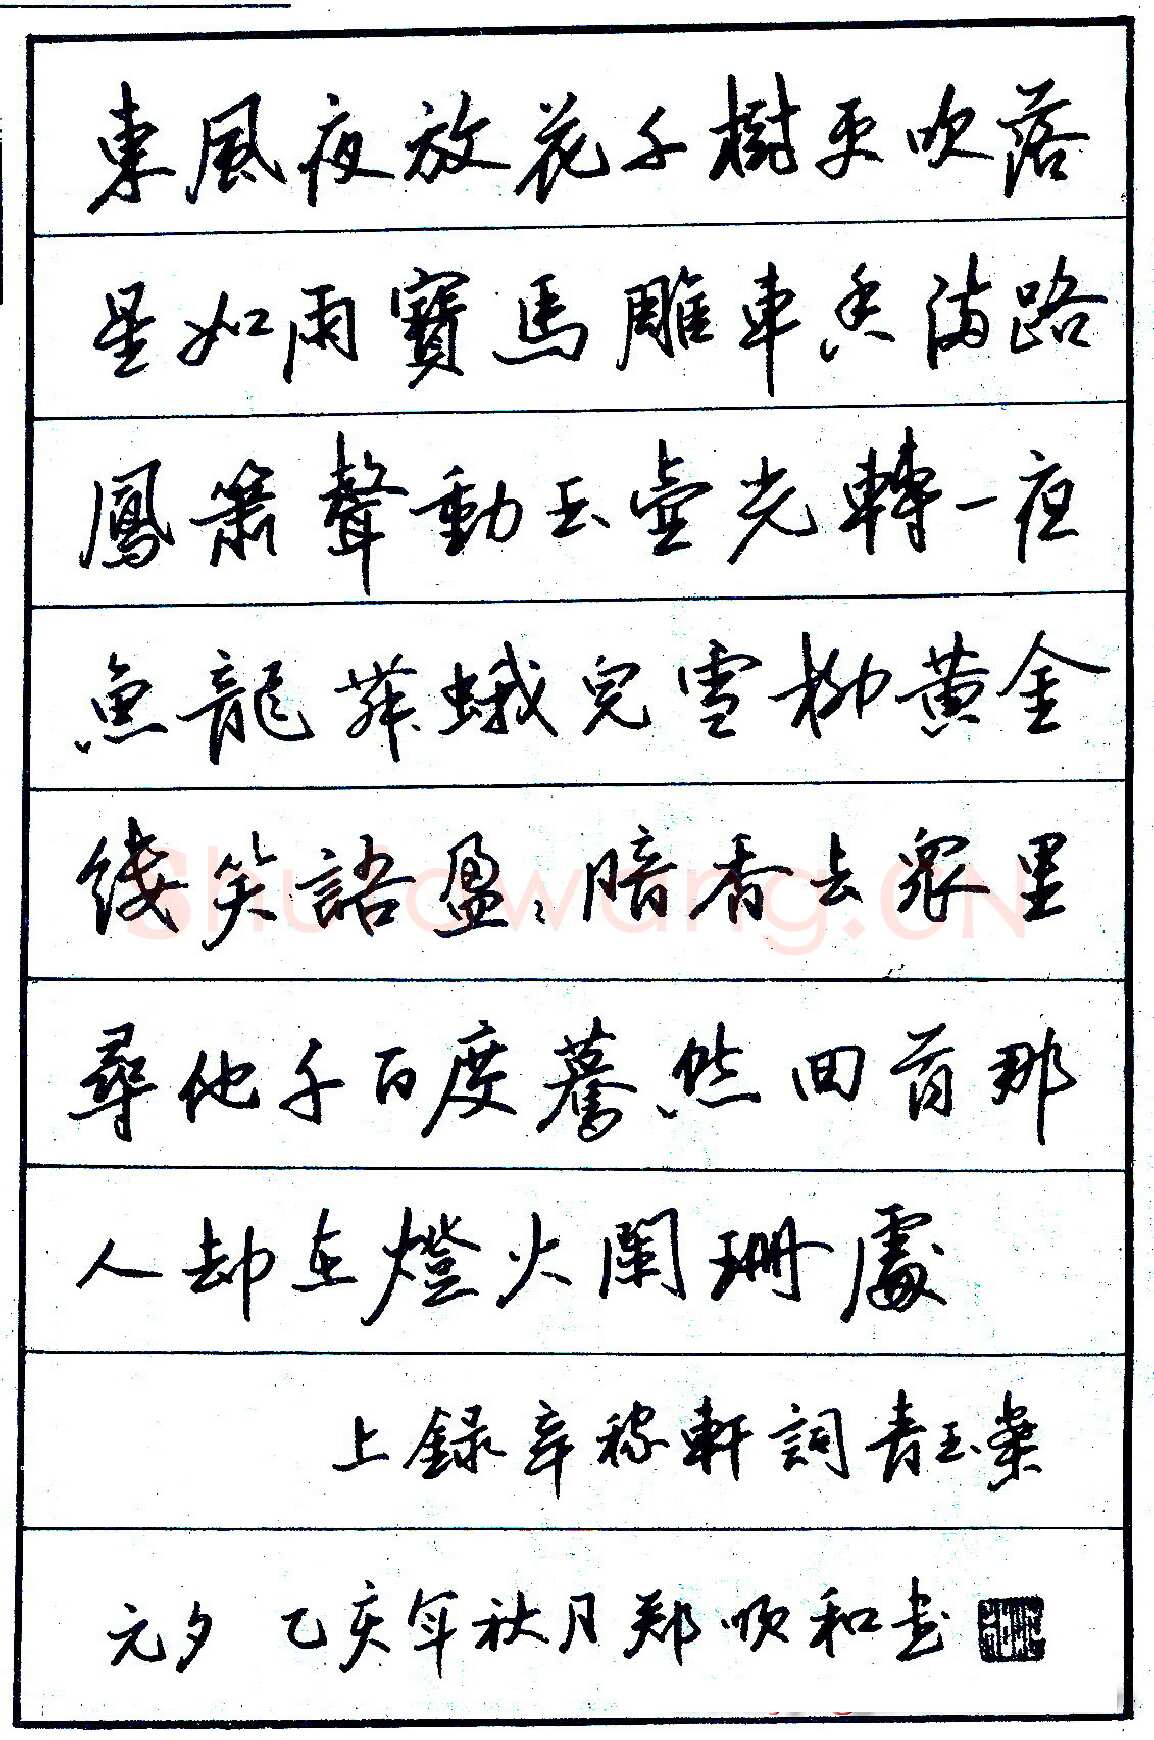 東風夜放花千樹更吹落
星如雨寶馬雕車香滿路
鳳簫聲動玉壺光轉一夜
魚龍舞蛾兒雪柳黃金
縷笑語盈〻暗香去眾里
尋他千百度驀然回首那
人却在燈火闌珊處
上録辛稼軒詞青玉案
元夕 乙亥年秋月郑順和书
Shufawang.CN